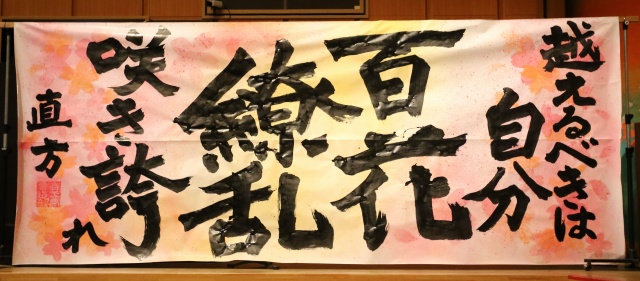 越えるべきは
自分
百花
繚乱
咲き誇れ
直方